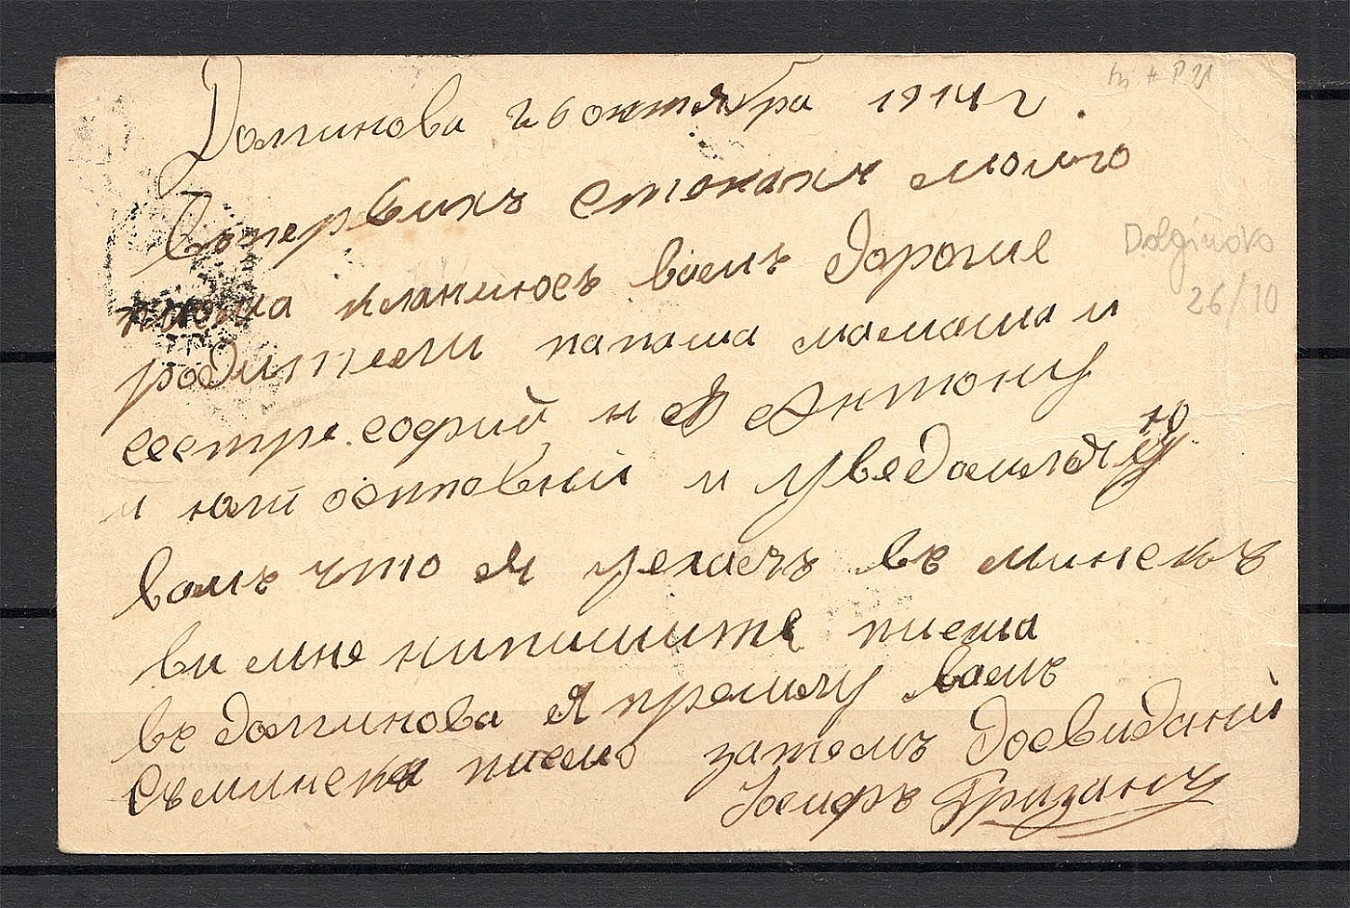 Долгинова 26 октября 1914 г.
Вопервихъ стокахъ моего
писма кланиюсъ вамъ дорогие
родители папаша мамаша и
сестре софий и Антону
и юлий и уведомляю
вамъ что я уехаеъ въ минскъ
ви мне нипишите писма
въ долгинова я прешлу вамъ
съминска писмо затемъ досвиданий
Иосифъ
Dolginovo
26/10